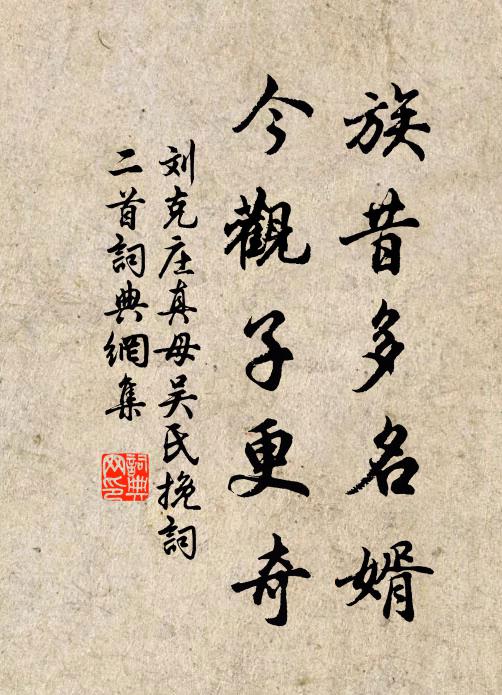 族昔多名婿
今觀子更奇
刘克庄真母吴氏挽詞
二首詞典網集
詞典網印